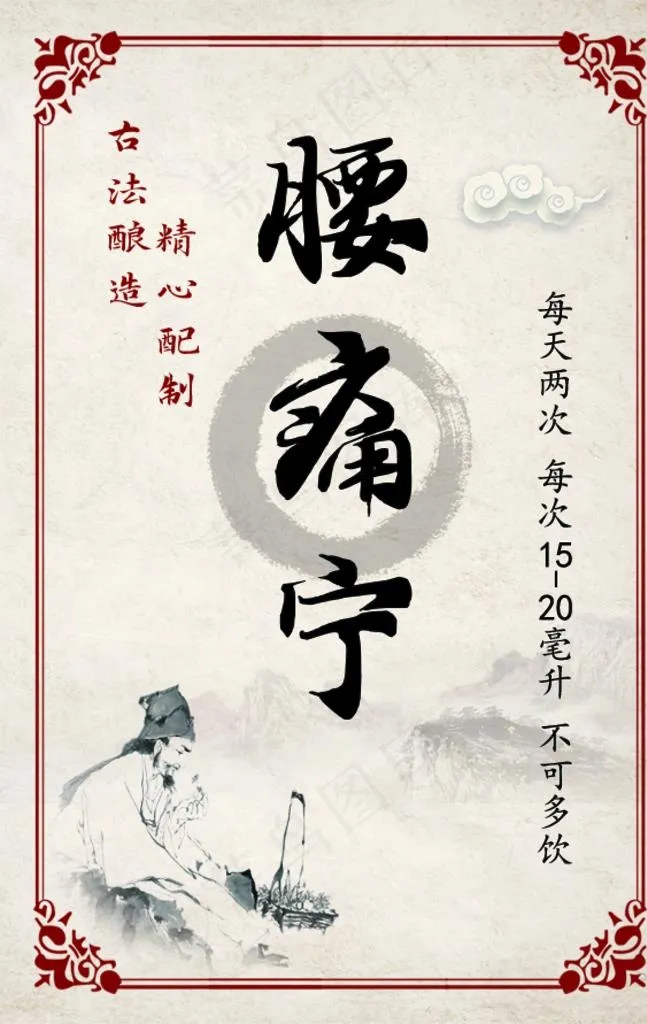 腰痛宁
古法酿造
精心配制
每天两次 每次15-20毫升 不可多饮